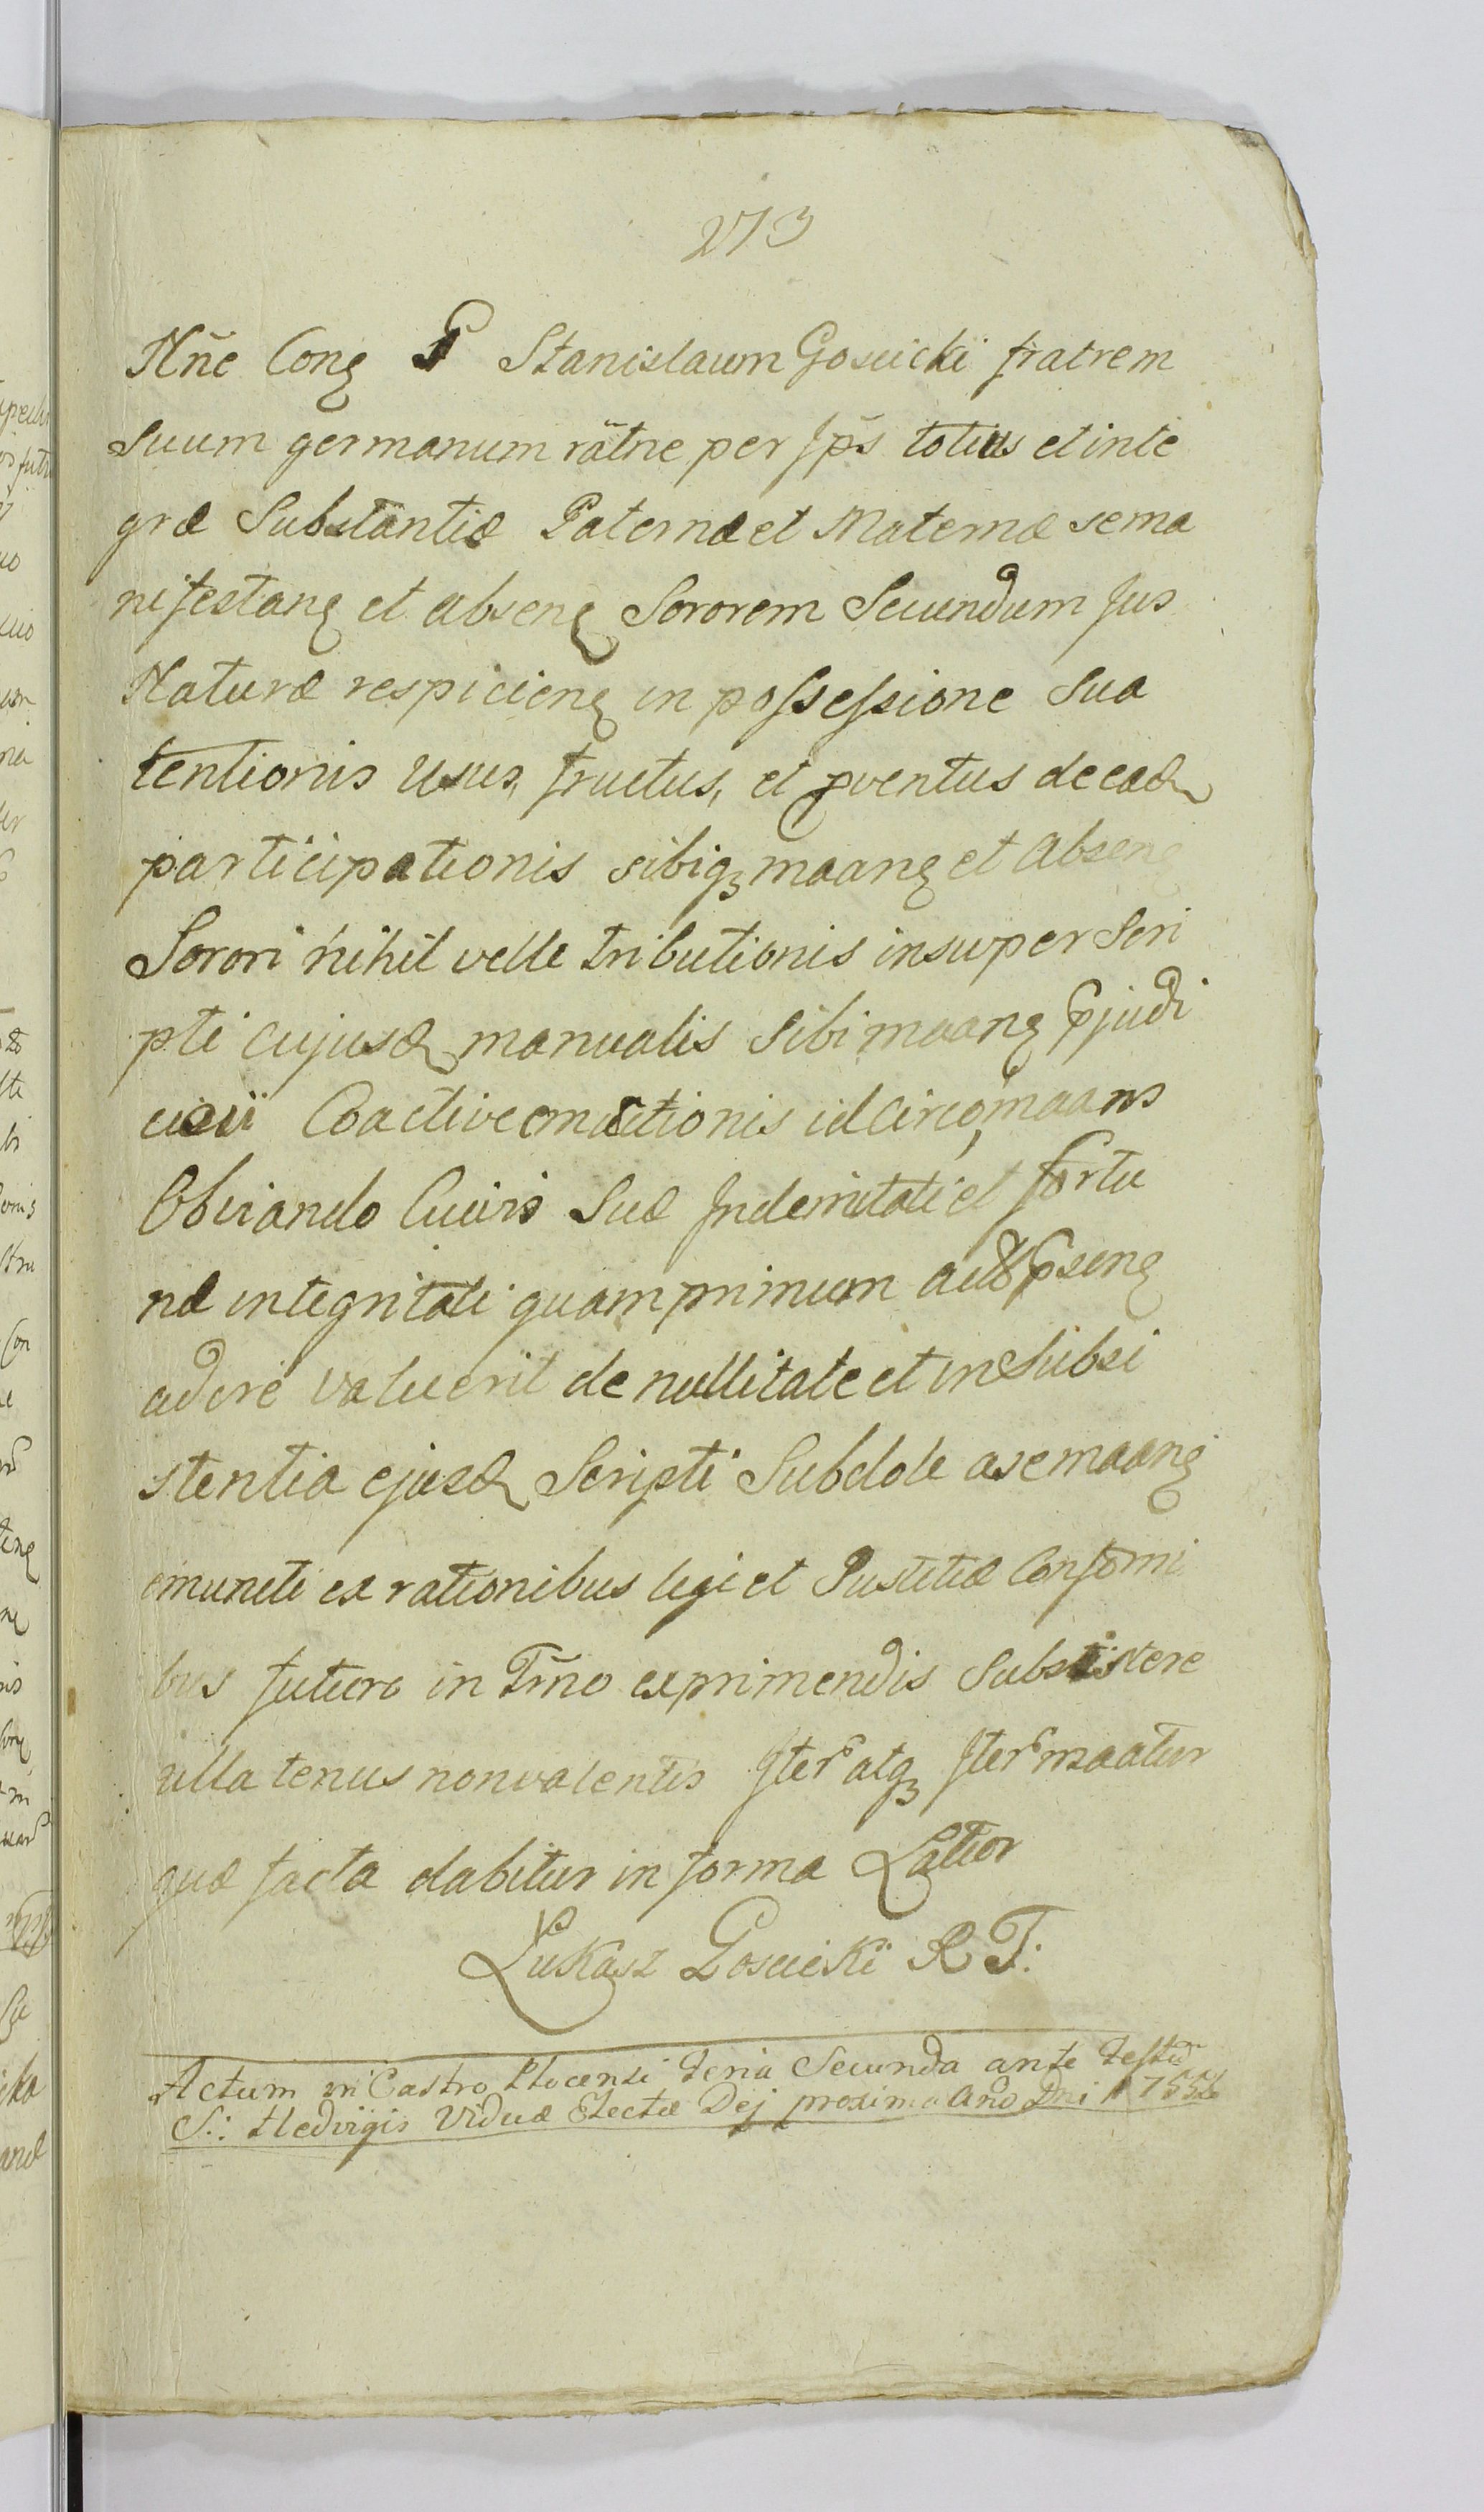 273
Mñe Cong G Stanislaum Gosciicki fratrem
Suum germanum rãtne per Jp̃s totius et inte
græ Substantiæ Paternæ et Maternæ se ma
nifestang et abseng Sororem Secundum Jus
Naturæ respicieng in possessione Sua
tentionis usus, fructus, et pventus de ead
participationis sibiqz maang et abseng
Sorori nihil velle tributionis insuper Scri
pti cujusd manualis Sibi maang pjudi
ciosii Coactive emãctionis idcirco, maans
Obviando Cuivis Suæ Indemitati et fortu
næ integritati quam primum act pseng
adire valuerit de nullitate et inSubsi
stentia ejusd Scripti Subdole a se maang
emuncti ex rationibus legi et Justitiæ Conformi
bus futuro in Tm̃o exprimendis Subsistere
ulla tenus non valentis Iter atqz Iter maatur
quæ facta dabitur in forma Lattior
Łukasz Gosciicki R T:
Actum in Castro Plocensi Feria Secunda ante Festũ
S.: Hedvigis Viduæ Electæ Dej proxima Año Dni